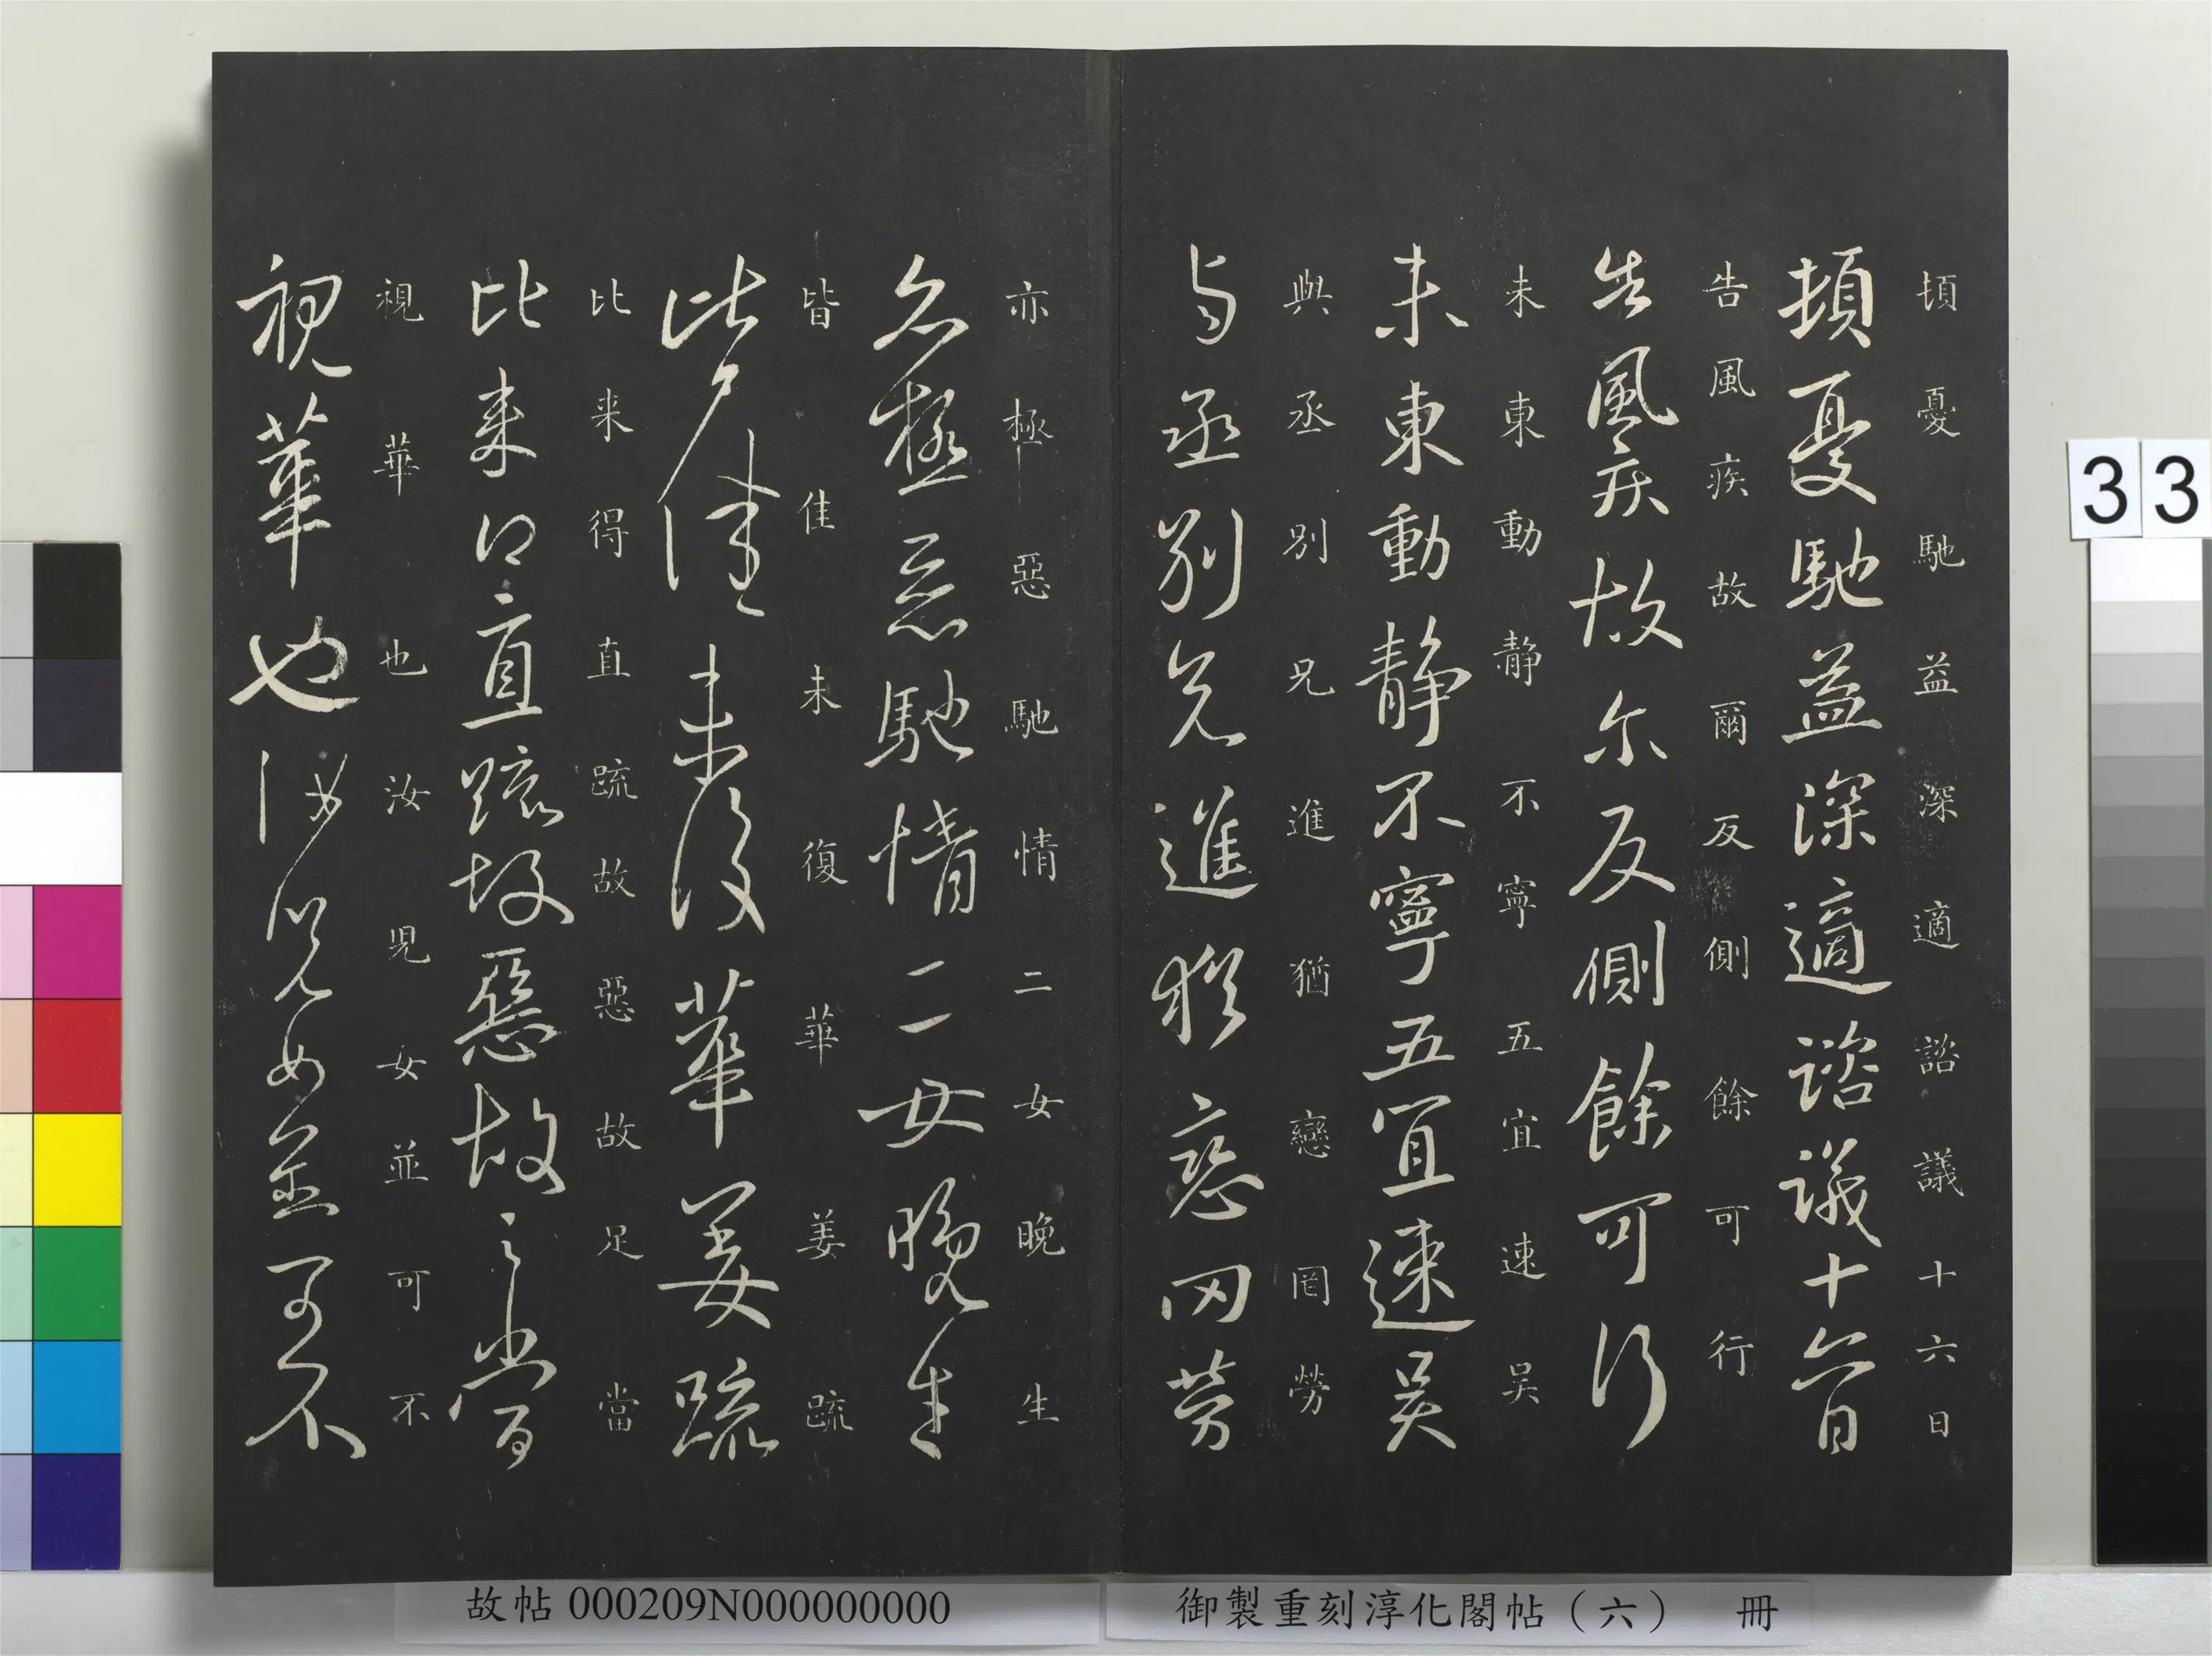 頓憂馳益深適諮議十六日
頓憂馳益深適諮議十六日
告風疾故爾反側餘可行
告風疾故尔反側餘可行
未東動靜不寧五宜速吴
未東動静不寧五宜速吴
與丞別兄進猶戀罔勞
与丞別兄進猶戀罔勞
亦極惡馳情二女晚生
亦極惡馳情二女晚生
皆佳未復華姜疏
皆佳未復華姜疏
比来得直疏故惡故足當
比来得直疏故惡故足當
視華也汝児女並可不
視華也汝児女並可不
33
故帖 000209N000000000
御製重刻淳化閣帖（六） 冊